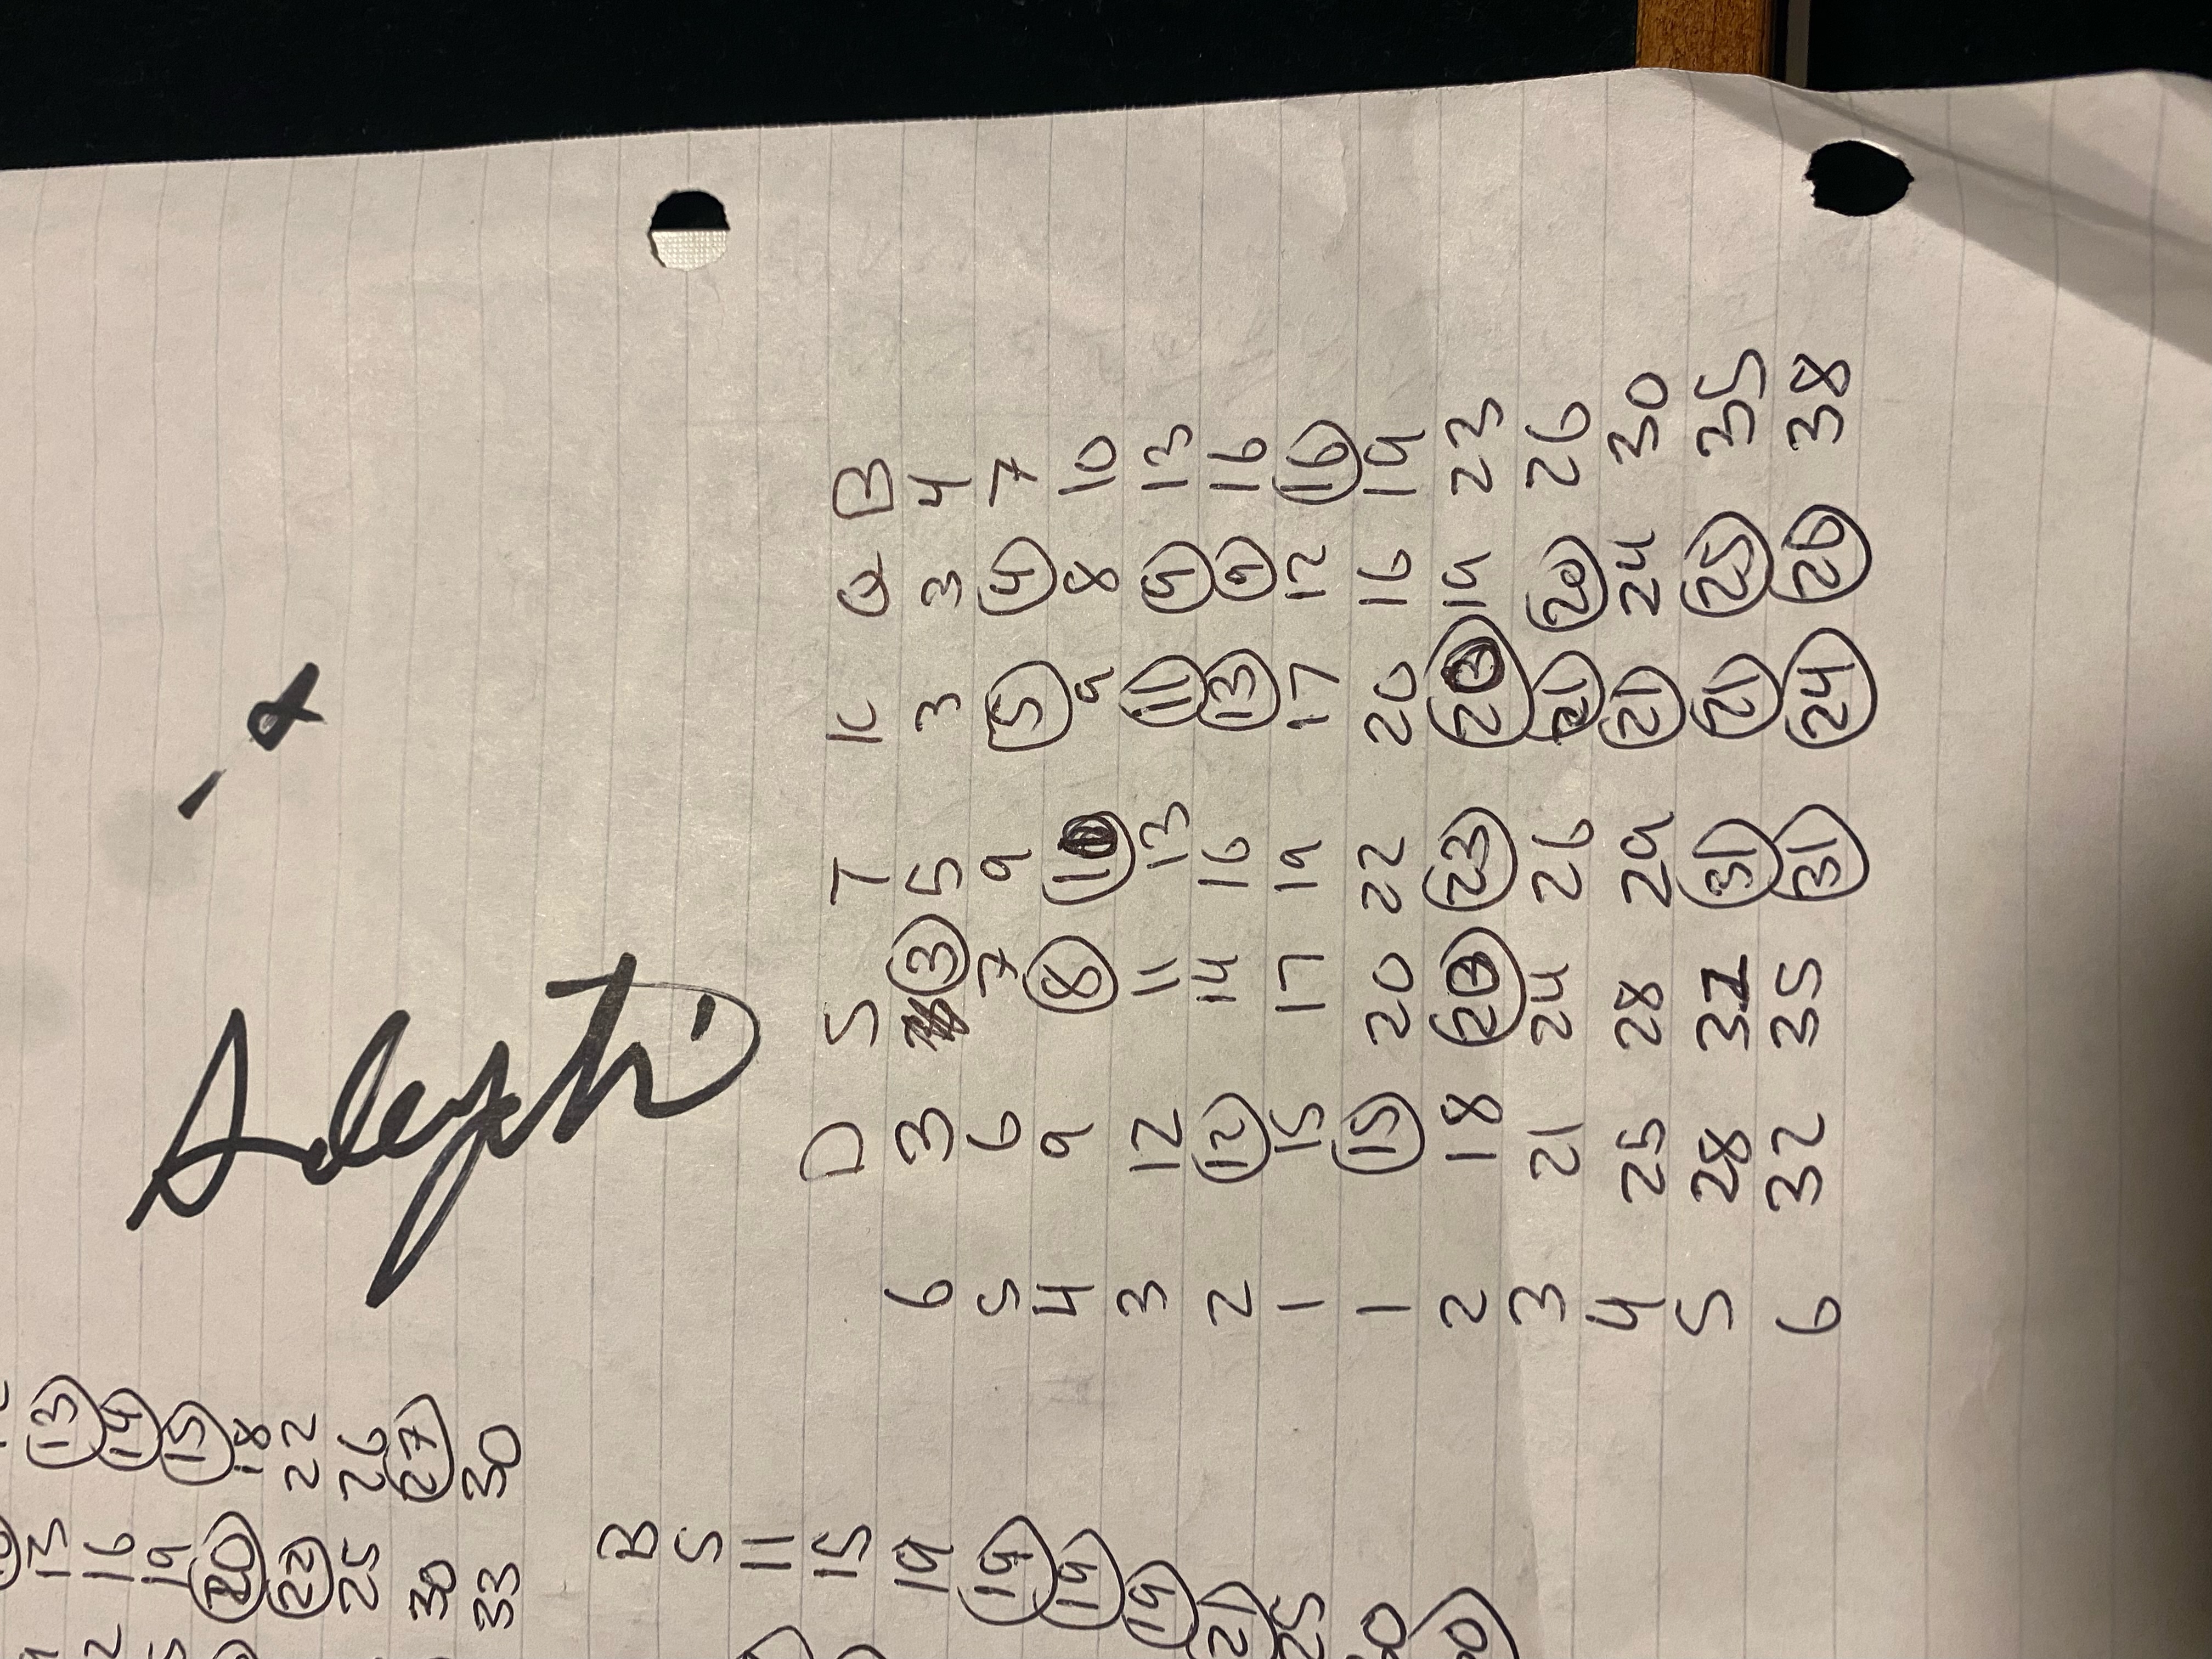 13 13
16 14
19 15
20 18
22 22
25 26
30 27
33 30
B
S
11
15
19
19
19
19
21
25
D S T K Q B
6 3 3 5 3 3 4
5 6 7 9 5 4 7
4 9 8 10 9 8 10
3 12 11 13 11 9 13
2 12 14 16 13 9 16
1 15 17 19 17 12 16
1 15 20 22 20 16 19
2 18 20 23 20 19 23
3 21 24 26 21 20 26
4 25 28 29 21 24 30
5 28 32 31 21 25 35
6 32 35 31 24 26 38